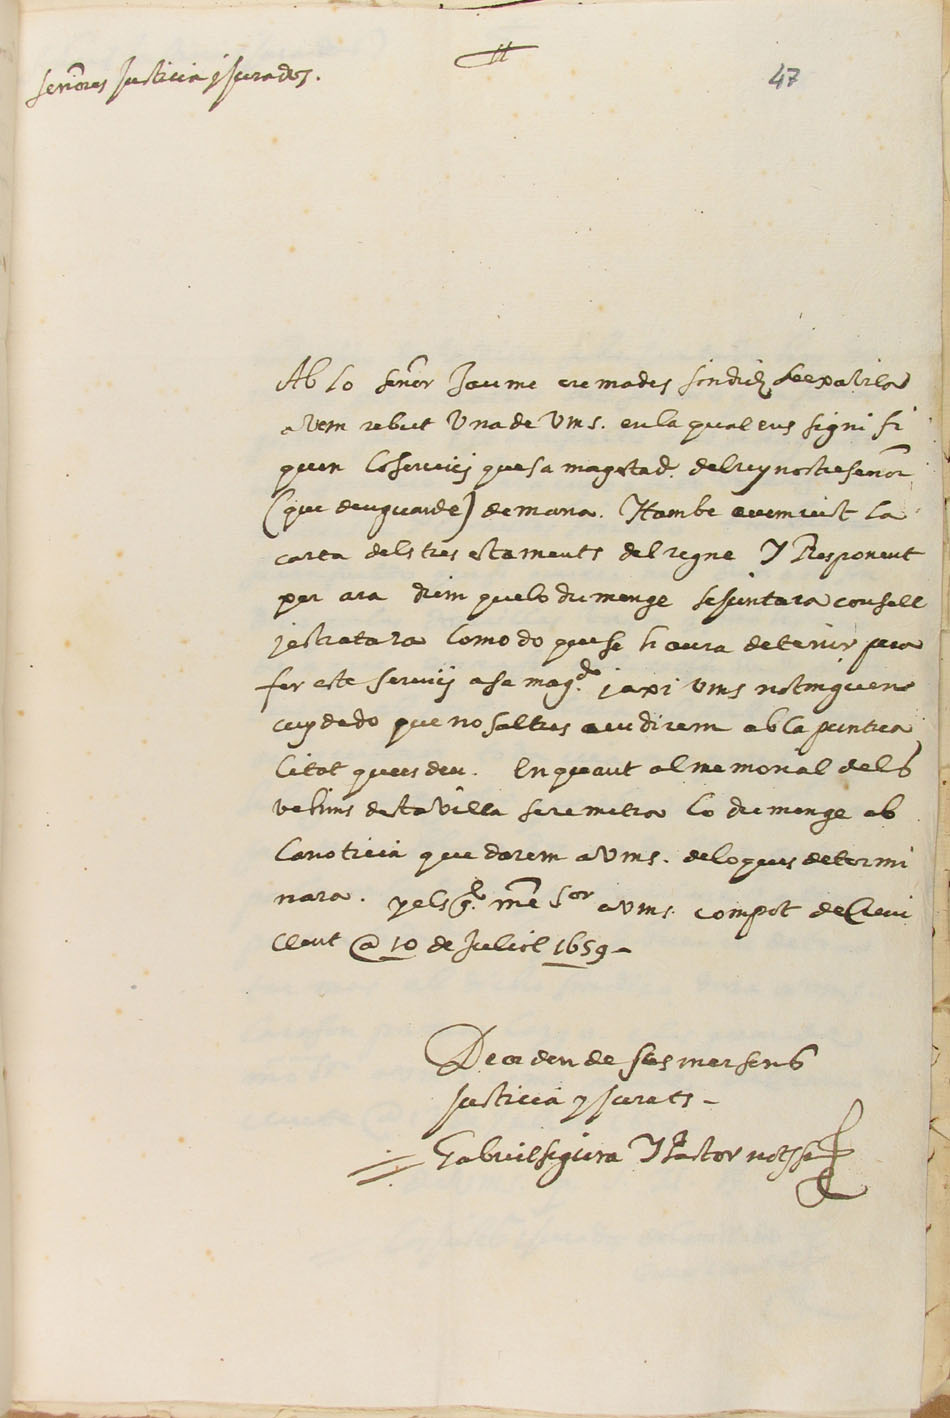 47
señores Justicia y Jurados.
Ab lo señor Jaume cremades sindich de exa vila
avem rebut Una de Vms. en la qual ens signi fi
quen lo servici que sa magestad. del rey nostre señor
(que deu guarde) demana. Y tambe avem vist la
carta dels tres estaments del regne Y Responent
per ara diem que lo dumenge se juntara consell
y es tratara lo modo que se haura de tenir pera
fer este servici a sa magd. y axi Vms no tinguen
cuydado que nosaltres acudirem ab la puntua
litat que es deu. En quant al memorial dels
vehins desta Villa se remetra lo dumenge ab
la noticia que darem a Vms. de lo que es determi
nara. a Vms. compot de Crevi
llent @ 10 de Juliol 1659
De orden de ses merses
Justicia y Jurats
Gabriel sigura Y Pastor not